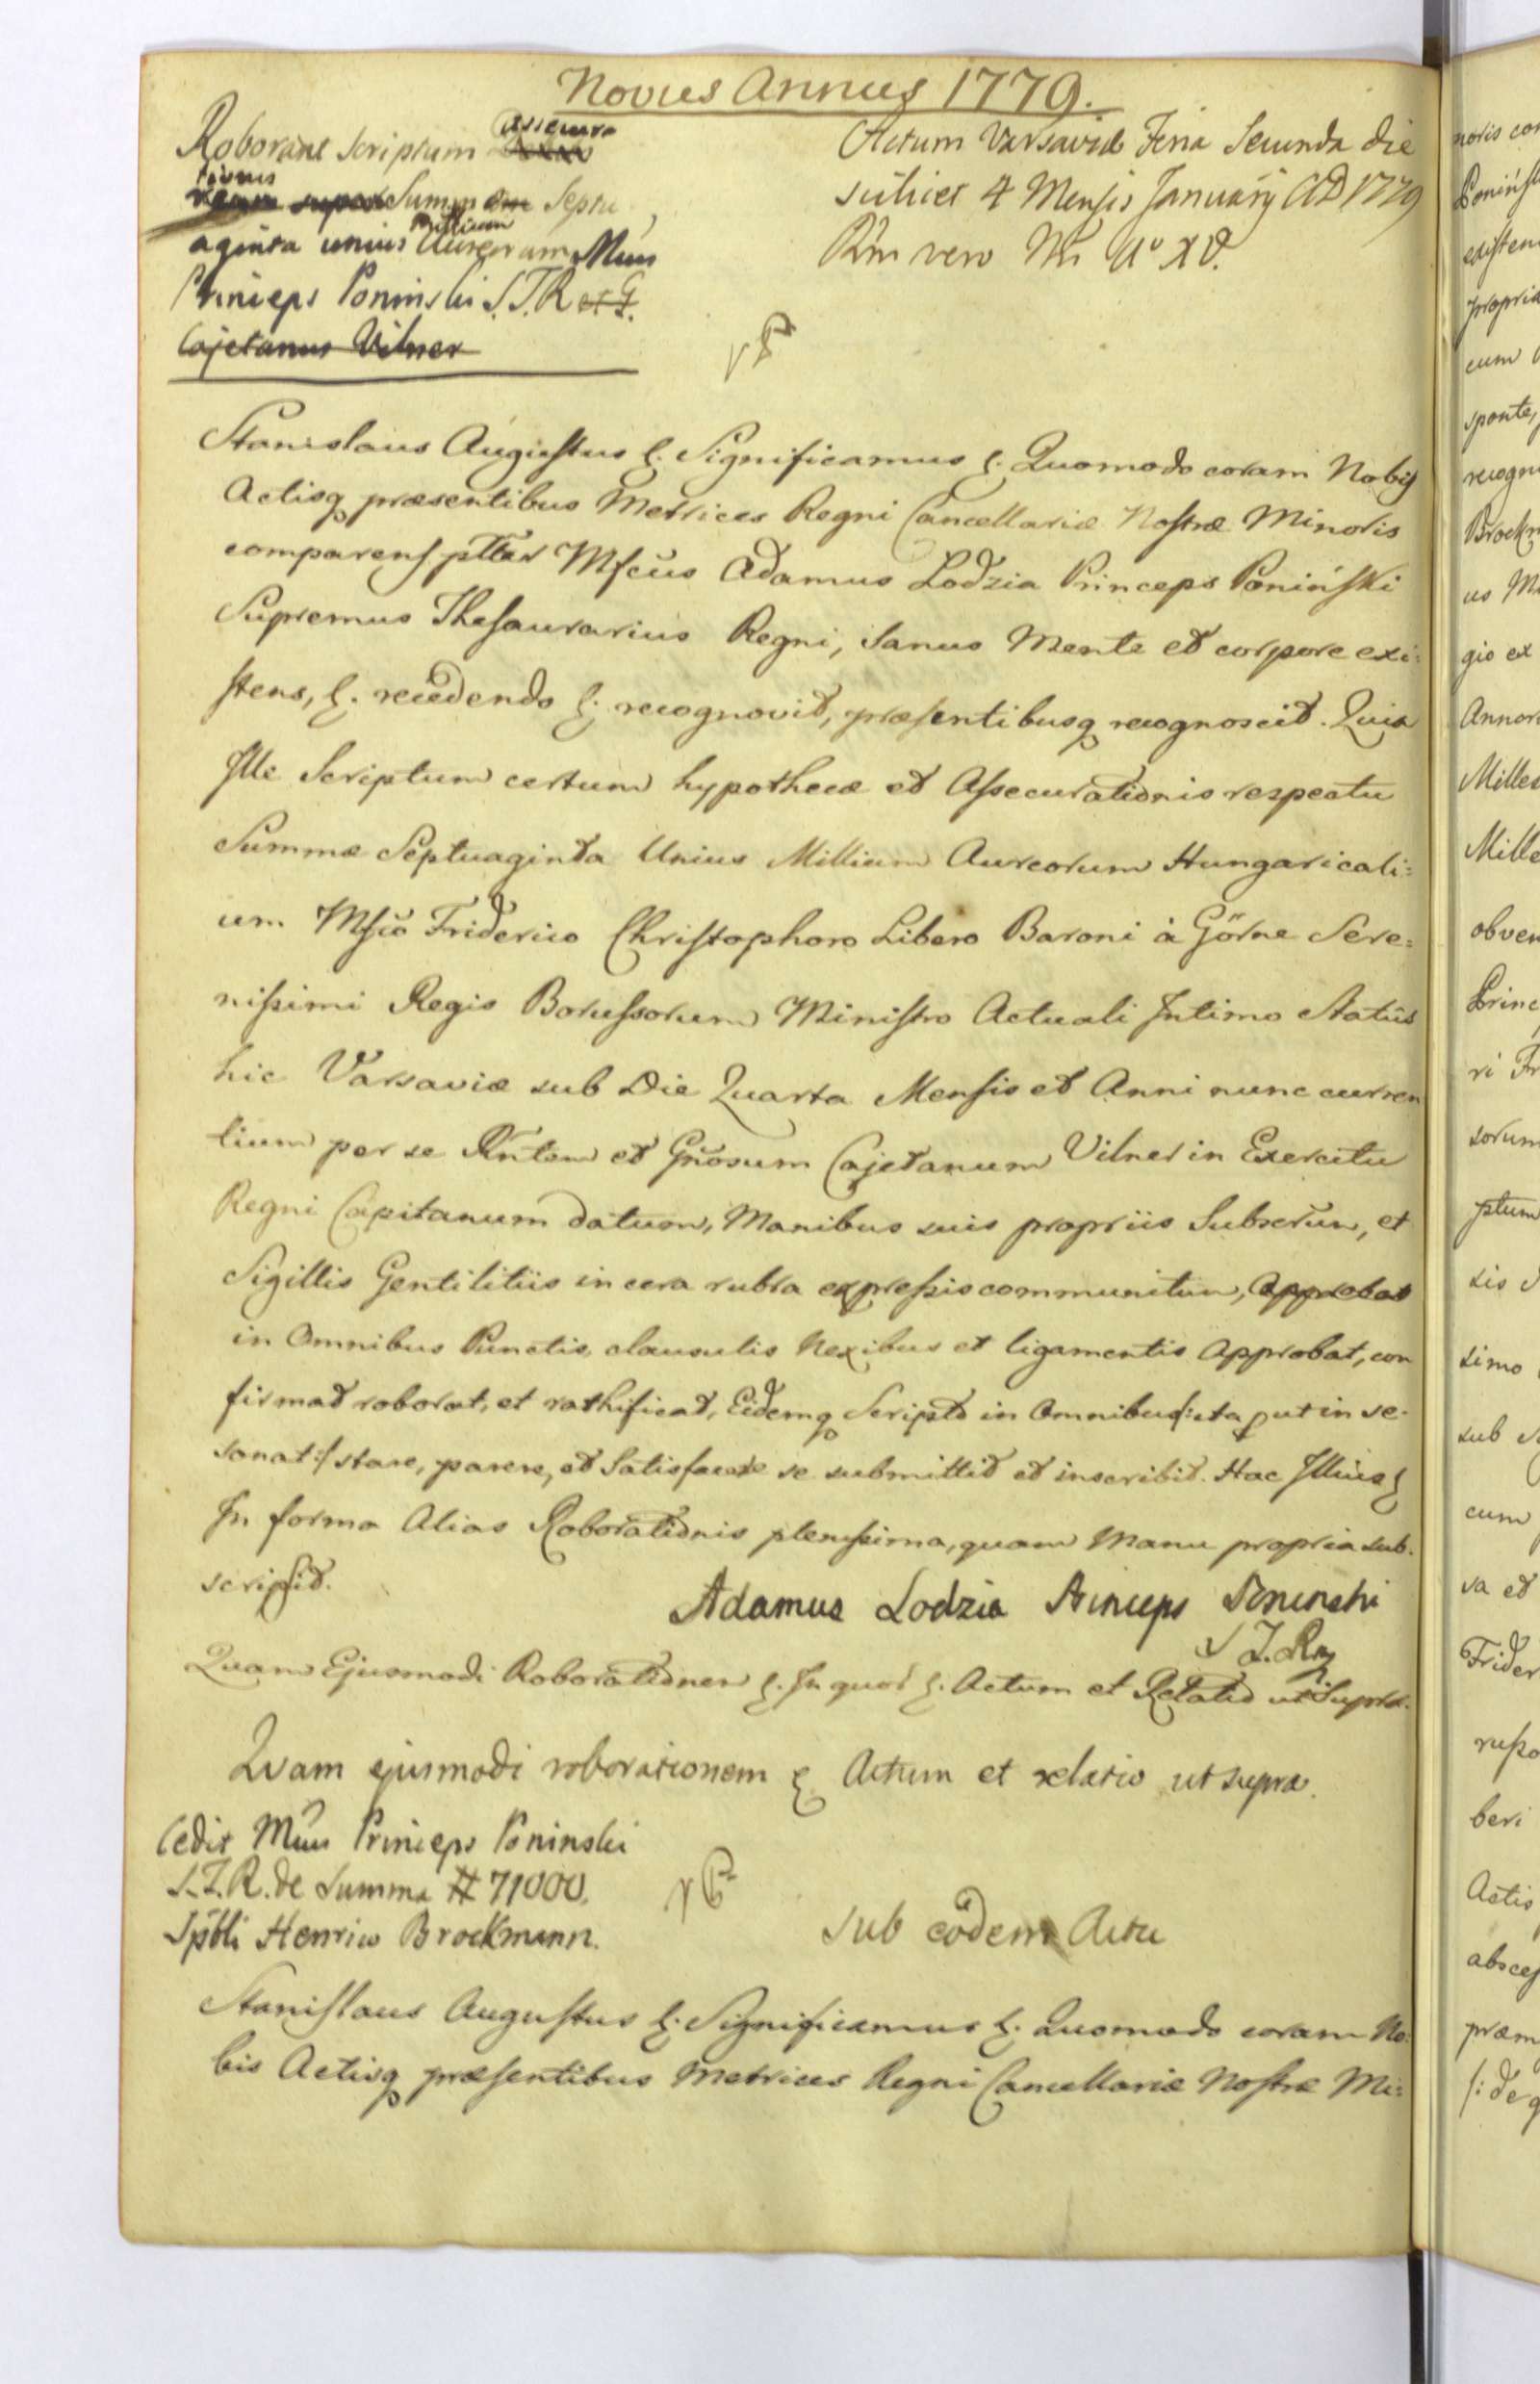 Novus Annus 1779.
Roborant Scriptum assecura
tionis Summ Septu
aginta unius Millium Aureorum Mcus
Princeps Poninski S.T.R et G.
Cajetanus Vilner
Actum Varsaviæ Feria Secunda die
scilicet 4 Mensis Januarÿ AD 1779
Rni vero Nri Aº XV.
Stanislaus Augustus &. Significamus &. Quomodo coram Nobis
Actisq præsentibus Metrices Regni Cancellariæ Nostræ Minoris
comparens pltter Mfcus Adamus Lodzia Princeps Poniński
Supremus Thesaurarius Regni, Sanus Mente et corpore exi:
stens, &. recedendo &. recognovit, præsentibusq recognoscit. Quia
Ille Scriptum certum hypothecæ et Assecurationis respectu
Summæ Septuaginta Unius Millium Aureorum Hungaricali:
um Mfco Friderico Christophoro Libero Baroni à Görne Sere:
nissimi Regis Borussorum Ministro Actuali Intimo Statûs
hic Varsaviæ sub Die Quarta Mensis et Anni nunc curren
tium per se Rntem et Gnosum Cajetanum Vilner in Exercitu
Regni Capitanum datum, Manibus suis propriis Subscrum, et
Sigillis Gentilitiis in cera rubra expressis communitum, Approbat
in Omnibus Punctis clausulis Nexibus et ligamentis Approbat, con
firmat roborat, et rathificat, Eidemq Scripto in Omnibus /:ita put in se
sonat:/ stare, parere, et Satisfacere se submittit et inscribit. Hac Illius &
In forma Alias Roborationis plenissima, quam Manu propria sub.
scripsit.
Adamus Lodzia Princeps Poninski
S T. R
Quam Ejusmodi Roborationem &. In quor &. Actum et Relatio ut Supra.
Quam ejusmodi roborationem & Actum et relatio ut supra.
Cedit Mcus Princeps Poninski
S.T.R. de Summa # 71000.
Spbli Henrico Brockmann.
Sub eodem Actu
Stanislaus Augustus &. Significamus &. Quomodo coram No:
bis Actisq præsentibus Metrices Regni Cancellariæ Nostræ Mi: